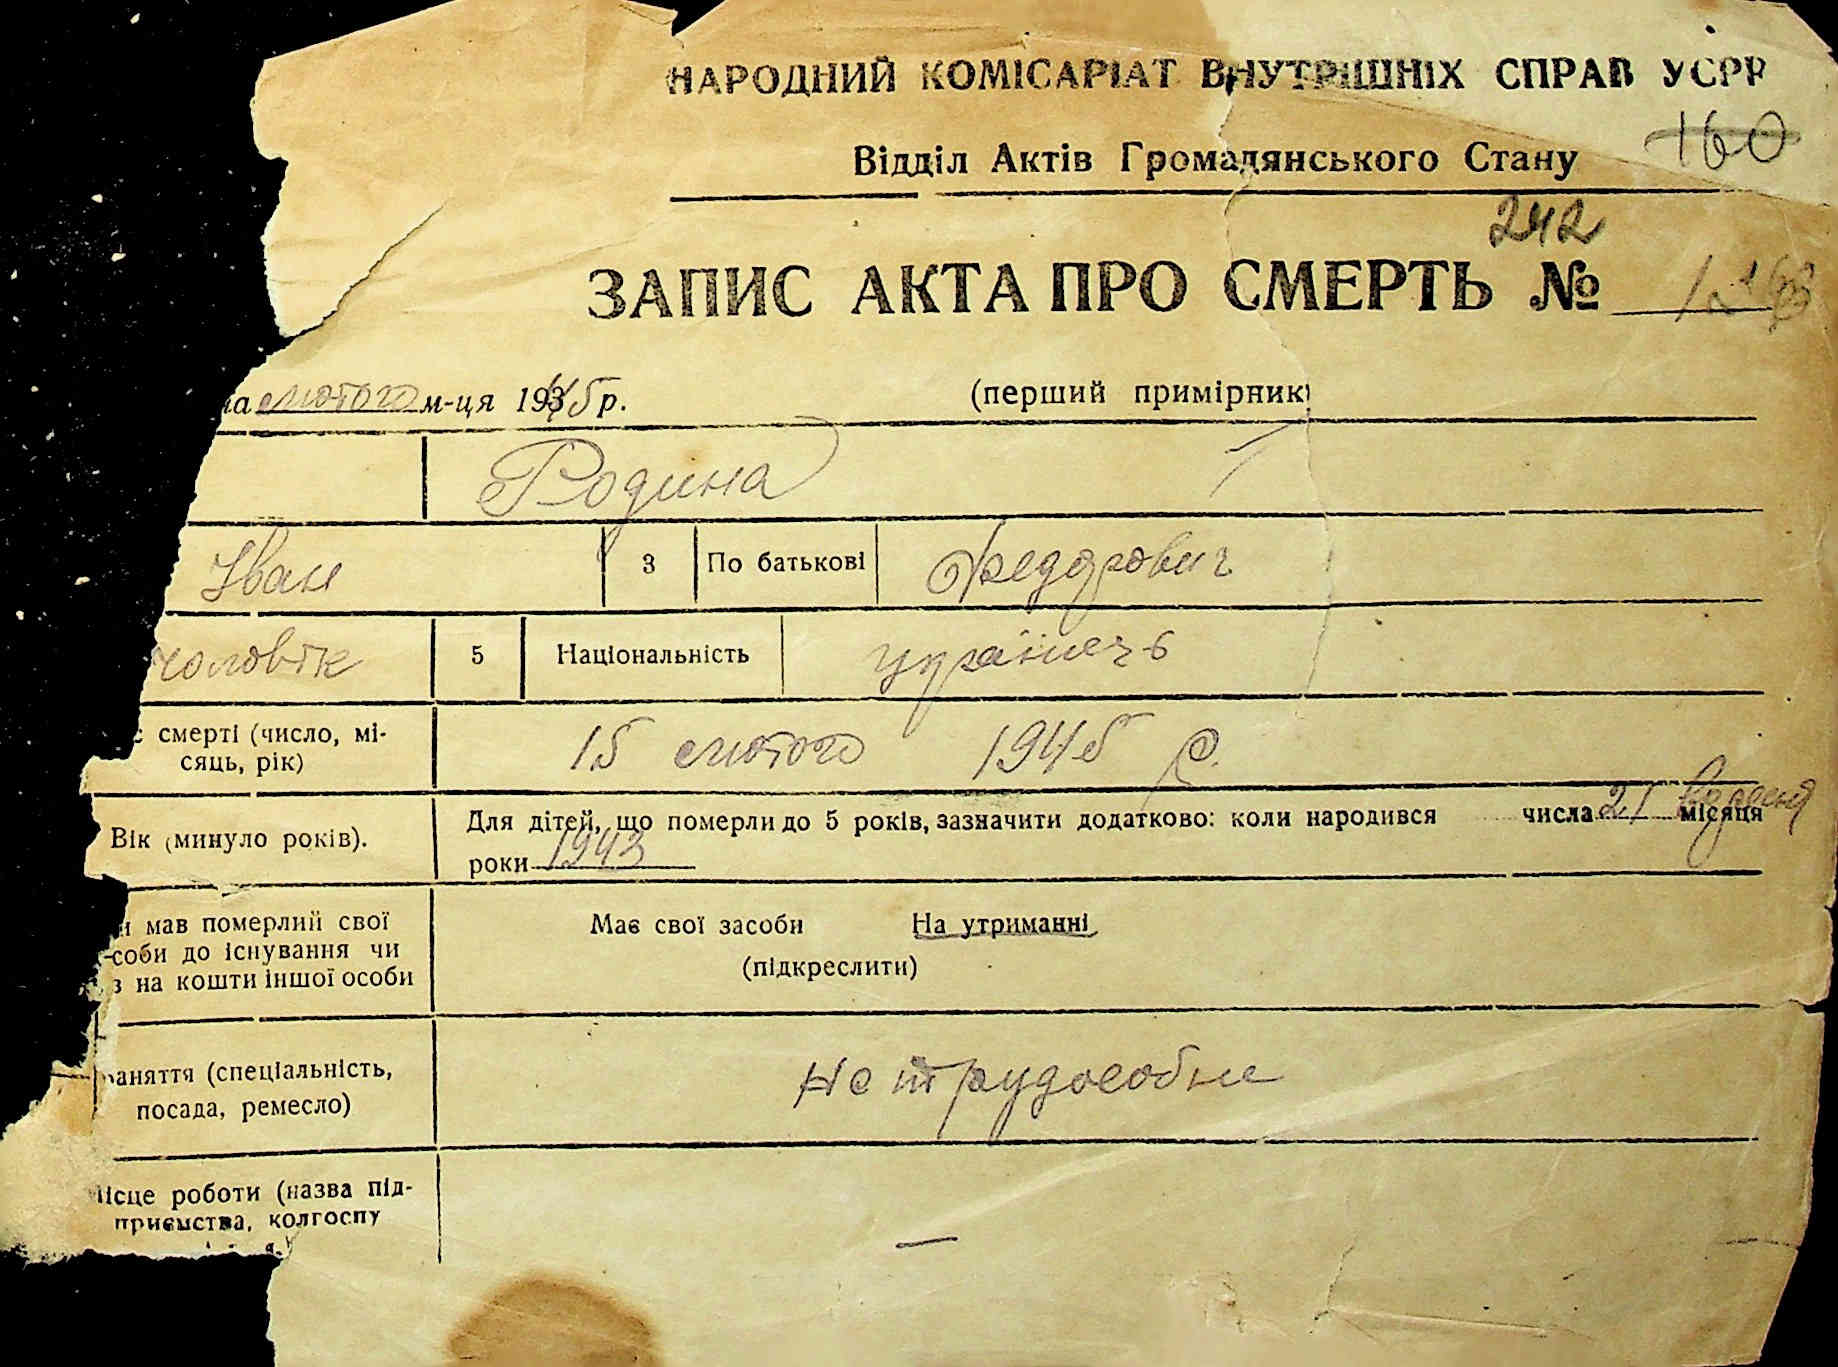 НАРОДНИЙ КОМІСАРІАТ ВНУТРІШНІХ СПРАВ УСРР
160
Відділ Актів Громадянського Стану
242
ЗАПИС АКТА ПРО СМЕРТЬ №
на лютого м-ця 1945 р. (перший примірник)
Родина
Іван 3 По батькові Федорович
чоловік 5 Національність українець
смерті (число, мі-
сяць, рік) 15 лютого 1945 р.
Вік (минуло років). Для дітей, що померли до 5 років, зазначити додатково: коли народився числа 21 місяця
роки 1943
мав померлий свої Має свої засоби На утриманні
соби до існування чи
на кошти іншої особи (підкреслити)
аняття (спеціальність,
посада, ремесло)
ісце роботи (назва під-
приємства, колгоспу —